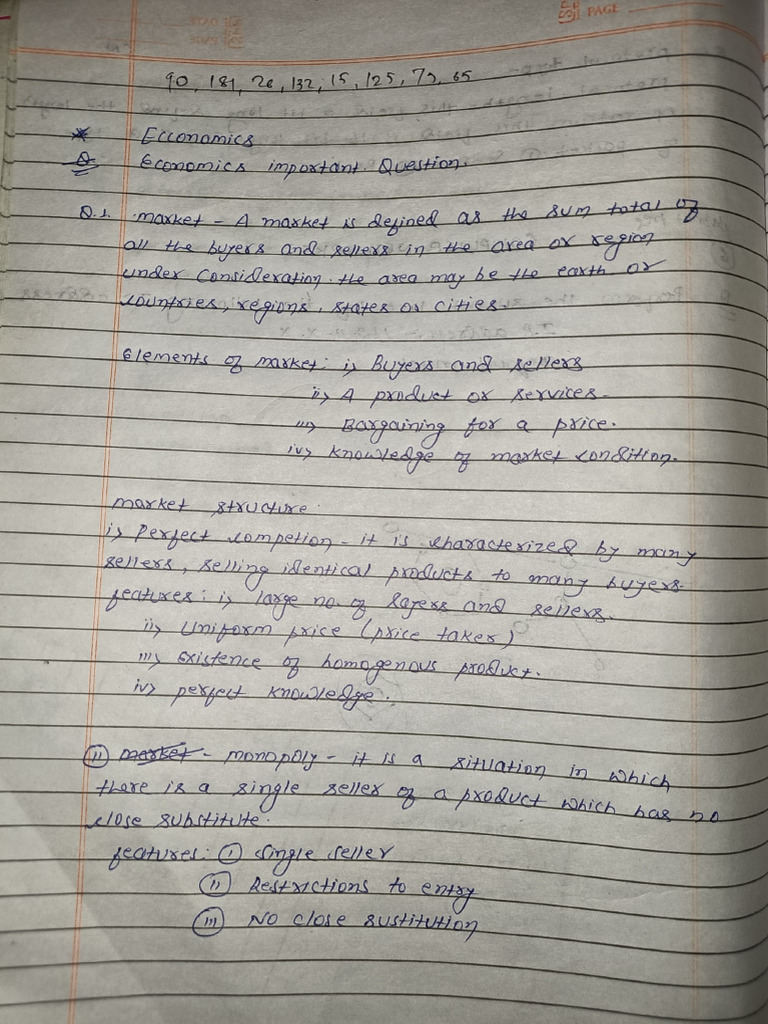 PAGE
90, 181, 26, 132, 15, 125, 72, 65
* Ecconomics
Q Economics important Question.
Q.1. market - A market is defined as the sum total of
all the buyers and sellers in the area or region
under consideration. the area may be the earth or
countries, regions, states or cities.
Elements of market: i> Buyers and sellers
ii> A product or services.
iii> Bargaining for a price.
iv> knowledge of market condition.
market structure:
i> Perfect competion - it is characterized by many
sellers, selling identical products to many buyers.
features: i> large no. of bayers and sellers.
ii> Uniform price (price taker)
iii> Existence of homogenous product.
iv> perfect knowledge.
(ii) market - monopoly - it is a situation in which
there is a single seller of a product which has no
close substitute.
features: (i) single seller
(ii) Restrictions to entry
(iii) No close sustitution